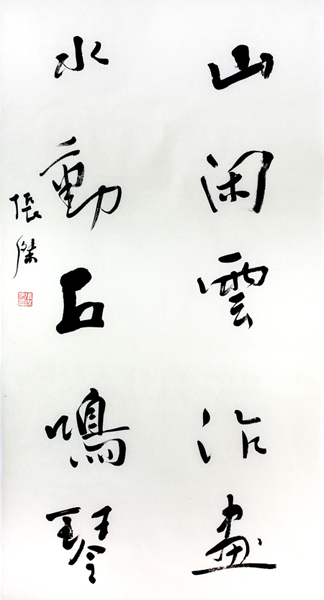 山闲雲作画
水動石鳴琴
張傑